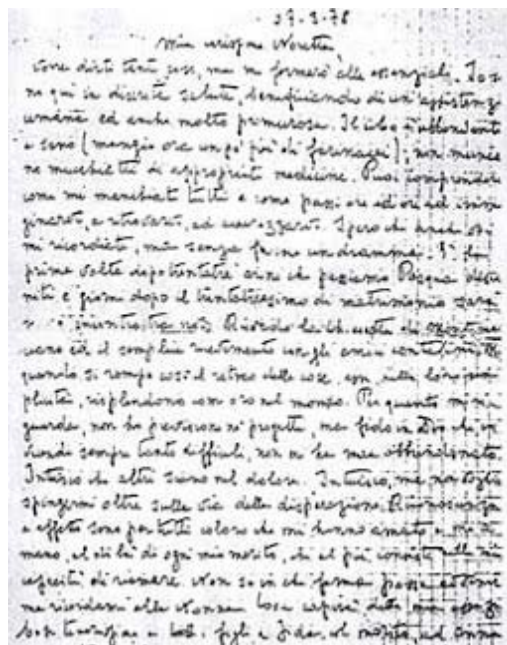 27-3-78
mia carissima Noretta,
dirti tante cose, ma mi fermerò alle essenziali. Io so-
no qui in discreta salute, beneficiando di un'assistenza
umana ed anche molto premurosa. Il cibo è abbondante
e sano (mangio ora un po' più di farinacei); non manca-
no mucchietti di appropriate medicine. Puoi comprendere
come mi manchiate tutti e come passi ore ed ore ad imma-
ginarvi, a ritrovarvi, ad accarezzarvi. Spero che anche voi
mi ricordiate, ma senza farne un dramma. È la
prima volta dopo trentatré anni che passiamo Pasqua disu-
niti e giorni dopo il trentatreesimo di matrimonio sarà
incontro tra noi. Ricordo la chiesetta di
ed il semplice ricevimento con gli amici contadini. Ma
quando si rompe così il ritmo delle cose, esse, nella loro sem-
plicità, risplendono come oro nel mondo. Per quanto mi ri-
guarda, non ho previsioni né progetti, ma fido in Dio che, in
vicende sempre tanto difficili, non mi ha mai abbandonato.
Intuisco che altri siano nel dolore. Intuisco, ma non voglio
spingermi oltre sulla via della disperazione. Riconoscenza
e affetto sono per tutti coloro che mi hanno amato e mi a-
mano, al di là di ogni mio merito, che al più consiste nella mia
capacità di riamare. Non so in che forma possa
ma ricordami alla Nonna. Cosa capirà della mia assen-
za? tenerezze a tutti i figli, a Fida col marito, ad Anna